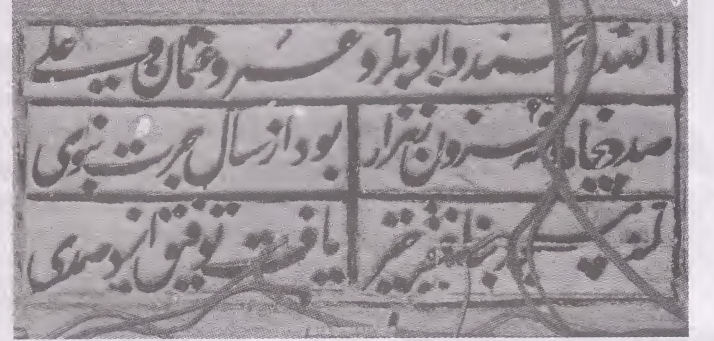 الله محمد و ابوبکر و عمر و عثمان و علی
صد و پنجاه و نه فزون ز هزار بود از سال هجرت نبوی
خیر یافت توفیق ایزد صمدی